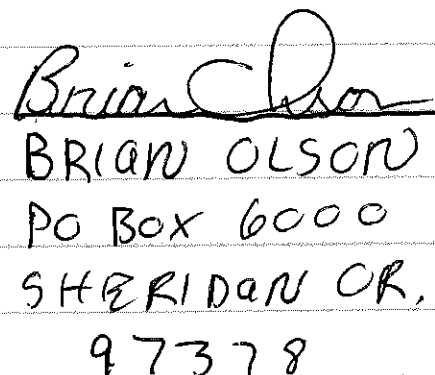 Brian Olson
BRIAN OLSON
PO BOX 6000
SHERIDAN OR.
97378